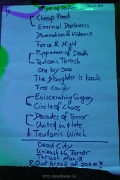 Cheap Food
Eternal Darkness
Damnation & Violence
Force & Might
Puppeteer of Death
Teutonic Thrash
One by One
The Slaughter is back
Tree
Eviscerating Surgery
Circle of Chaos
Decades of Terror
United in Hate
Teutonic Witch
Dead City
Unleash the Terror
Thrash Mass
Outbreak of